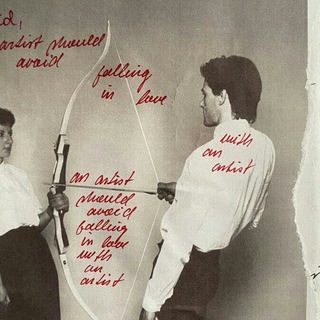 id,
artist should
avoid
falling
in love
with
an
artist
an artist
should
avoid
falling
in love
with
an
artist